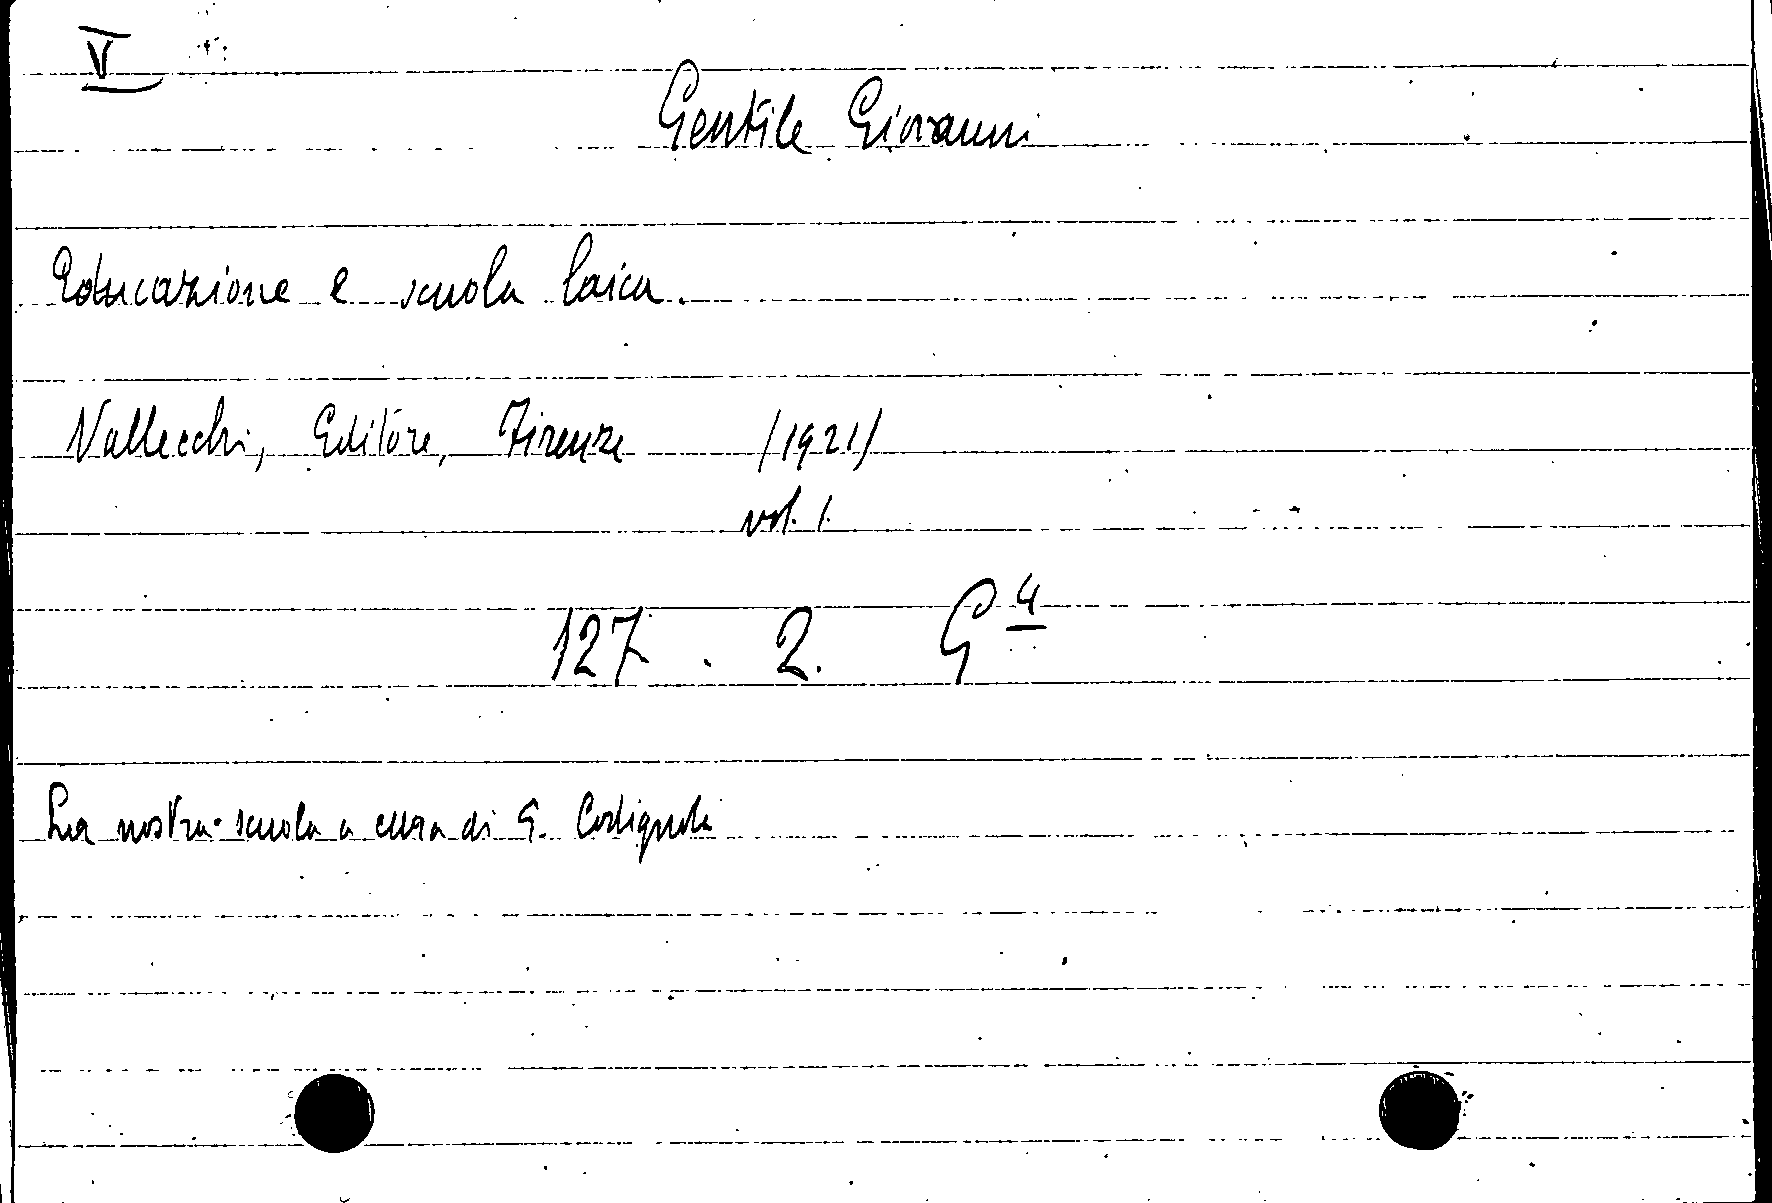 V
Gentile Giovanni
Educazione e scuola laica.
Vallecchi, Editore, Firenze (1921)
vol. 1.
127 . 2. G 4
La nostra scuola a cura di E. Codignola